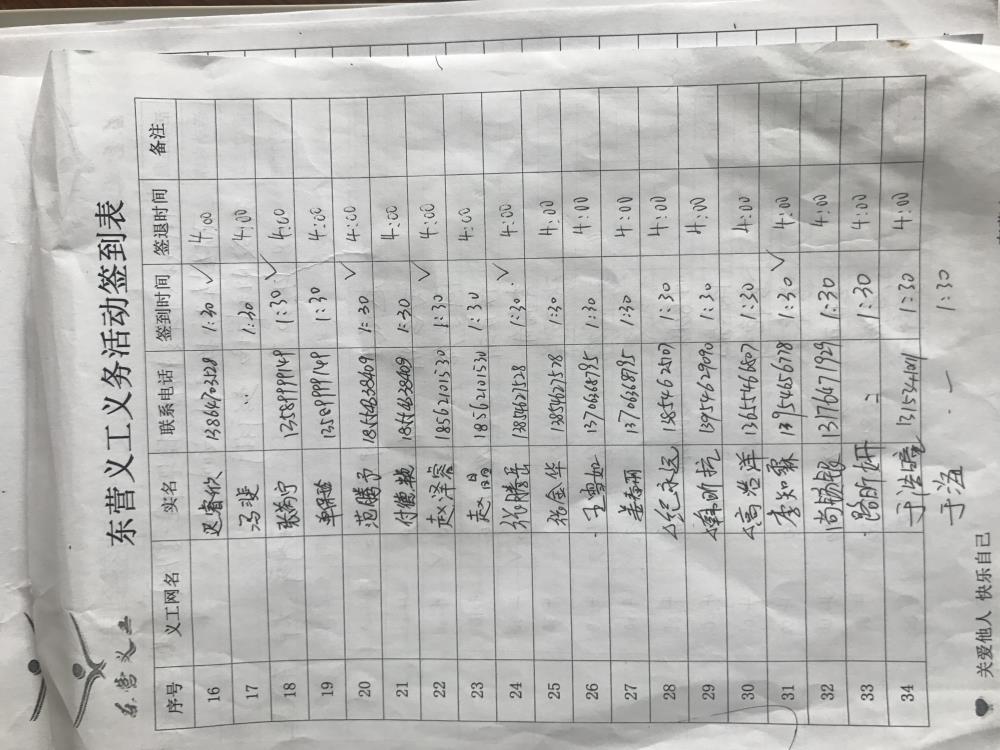 东营义工
东营义工义务活动签到表
序号 义工网名 实名 联系电话 签到时间 签退时间 备注
16 延睿欣 1:30 ✓ 4:00
17 冯斐 1:30 4:00
18 张芮宁 13589999149 1:30 ✓ 4:00
19 单保险 13589999149 1:30 4:00
20 范腾予 18554638409 1:30 ✓ 4:00
21 付德艳 18554638409 1:30 4:00
22 赵泽睿 18562101530 1:30 ✓ 4:00
23 赵晶 18562101530 1:30 4:00
24 张腾岳 13854627528 1:30 ✓ 4:00
25 张金华 13854627528 1:30 4:00
26 王雪如 13706368795 1:30 4:00
27 姜春丽 13706368795 1:30 4:00
28 △纪永远 13854625107 1:30 4:00
29 △韩昕抗 13954629090 1:30 4:00
30 △高浩洋 13655466807 1:30 4:00
31 李知霖 13954656718 1:30 ✓ 4:00
32 尚畅银 13176471929 1:30 4:00
33 路昕妍 1:30 4:00
34 于浩 1:30 4:00
于海 1:30
关爱他人 快乐自己